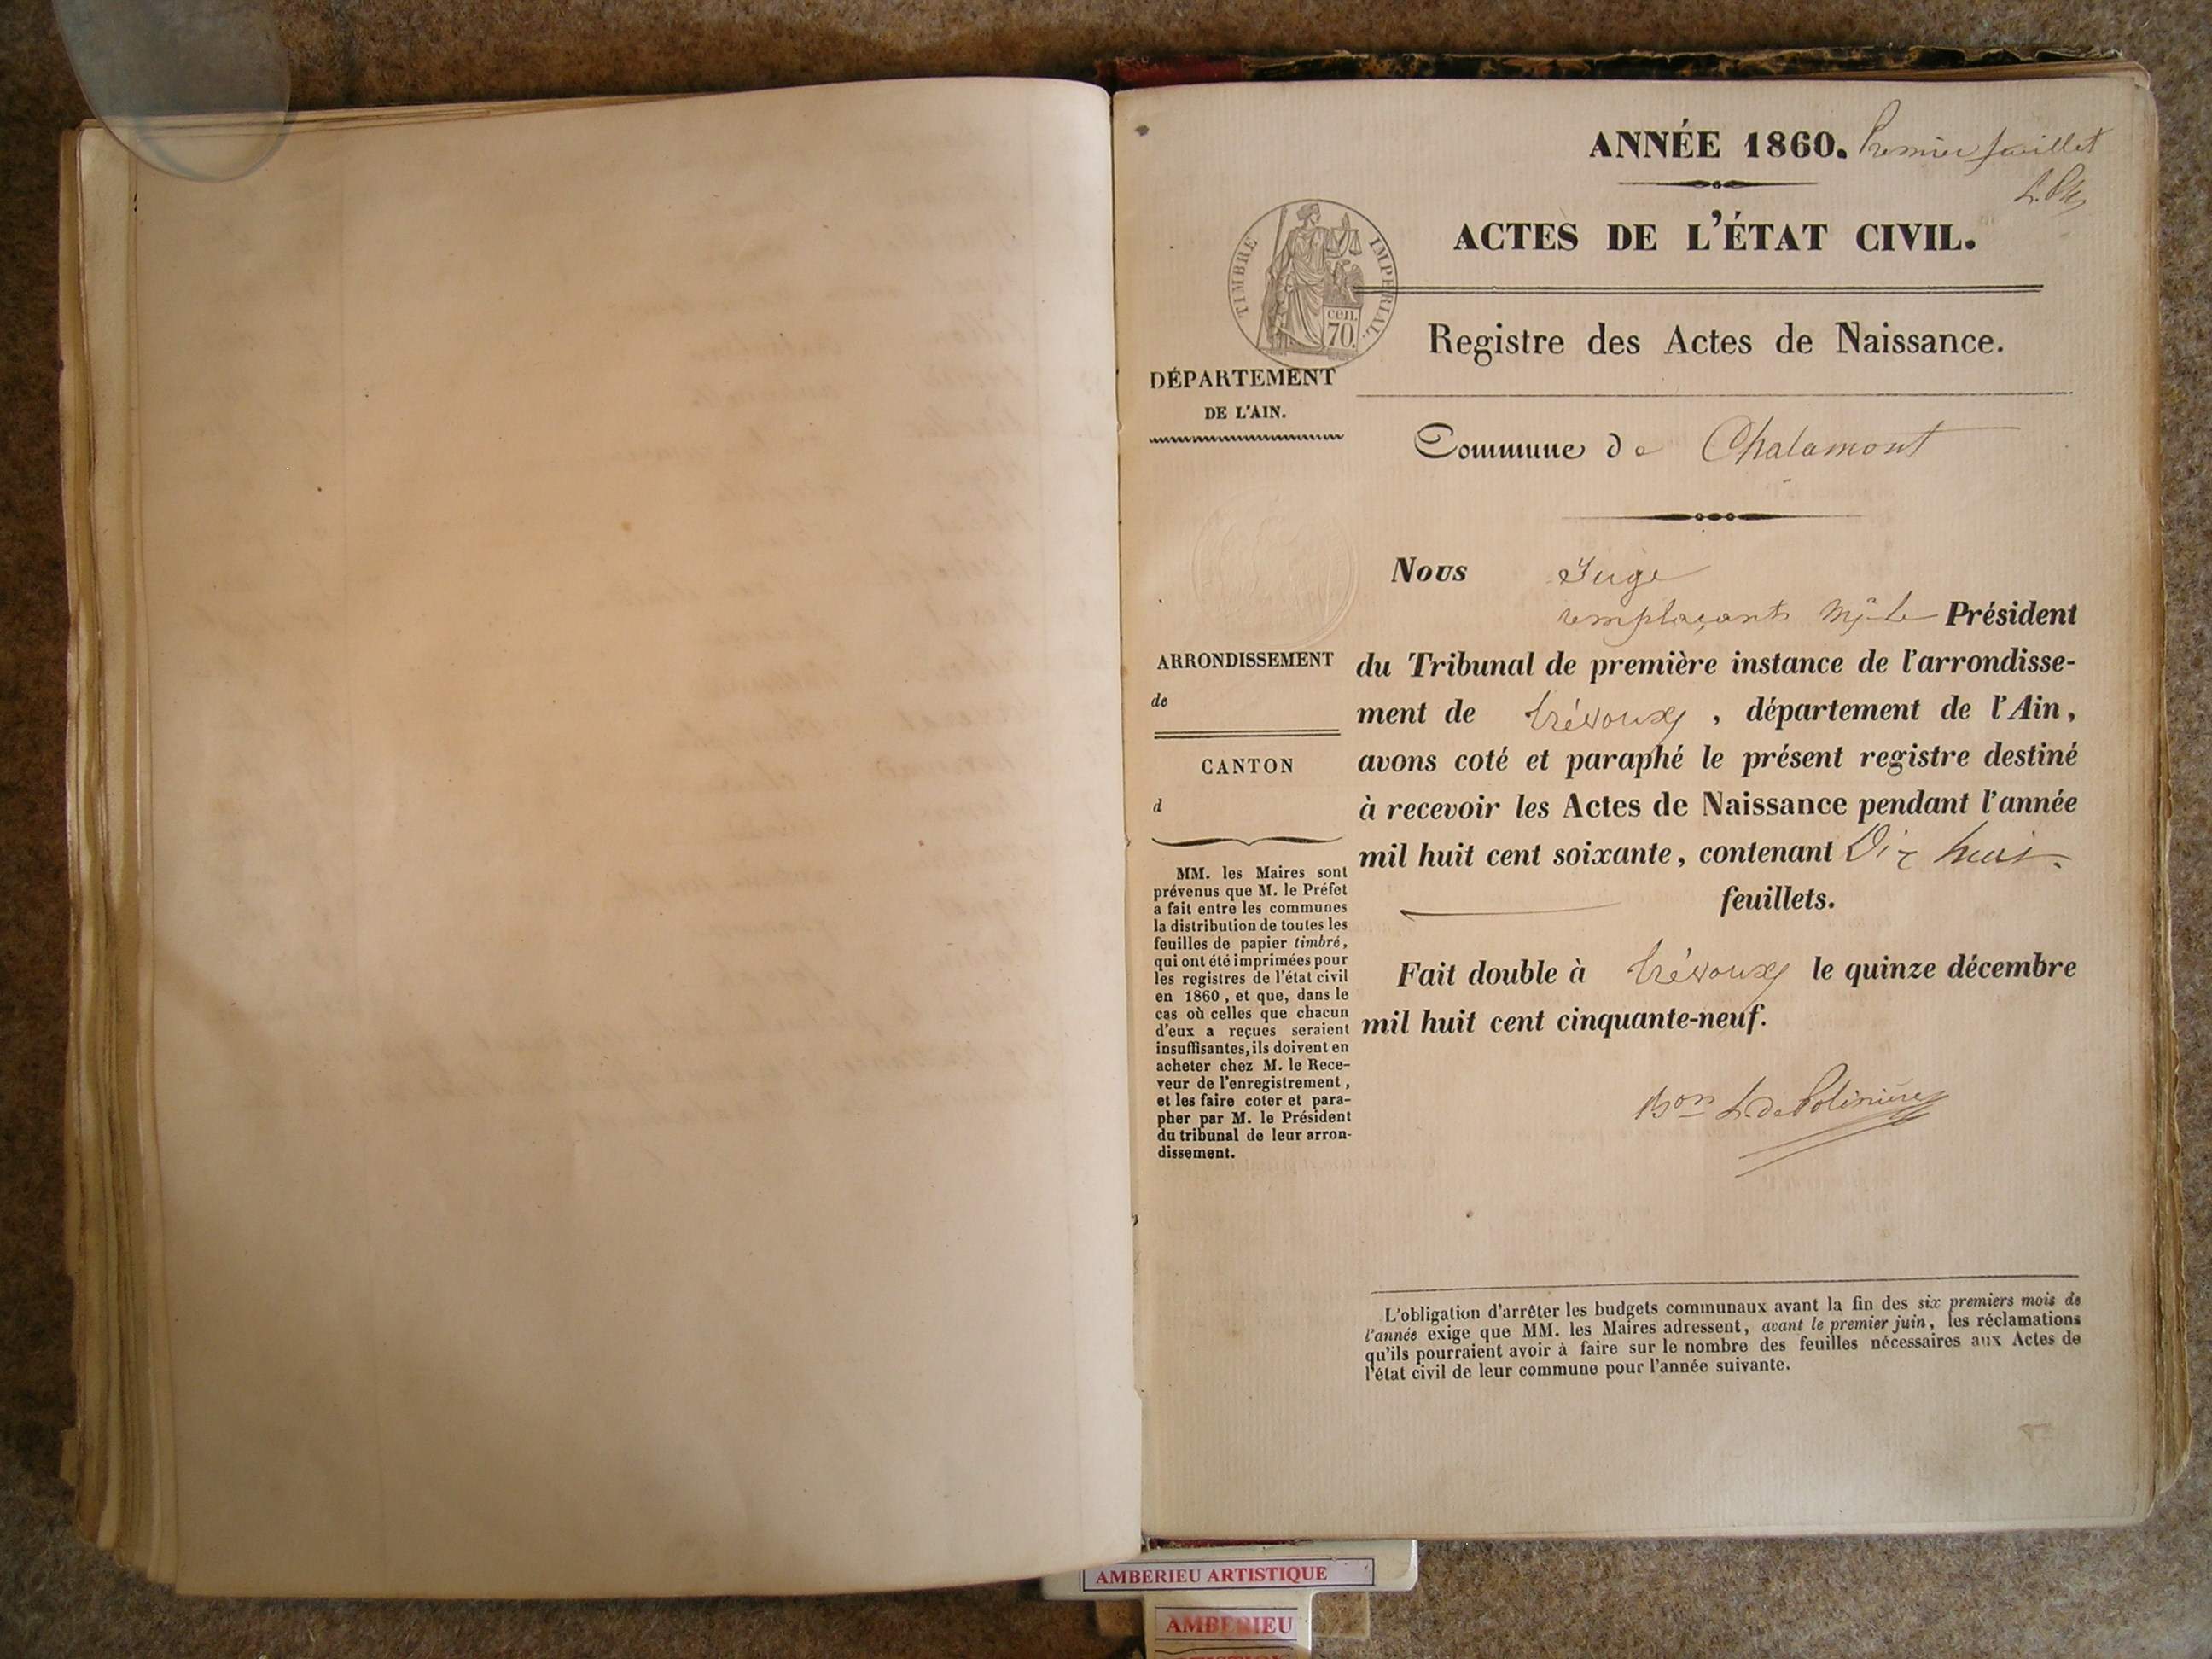 ANNÉE 1860. Premier feuillet
ACTES DE L'ÉTAT CIVIL.
TIMBRE IMPÉRIAL.
cen.
70.
Registre des Actes de Naissance.
DÉPARTEMENT
DE L'AIN.
Commune de Chalamont
Nous Juge
remplaçant Mr le Président
du Tribunal de première instance de l'arrondisse-
ment de trévoux, département de l'Ain,
avons coté et paraphé le présent registre destiné
à recevoir les Actes de Naissance pendant l'année
mil huit cent soixante, contenant Dix huit
feuillets.
Fait double à trévoux le quinze décembre
mil huit cent cinquante-neuf.
Bon L de Polinière
ARRONDISSEMENT
de
CANTON
d
MM. les Maires sont
prévenus que M. le Préfet
a fait entre les communes
la distribution de toutes les
feuilles de papier timbré,
qui ont été imprimées pour
les registres de l'état civil
en 1860, et que, dans le
cas où celles que chacun
d'eux a reçues seraient
insuffisantes, ils doivent en
acheter chez M. le Rece-
veur de l'enregistrement,
et les faire coter et para-
pher par M. le Président
du tribunal de leur arron-
dissement.
L'obligation d'arrêter les budgets communaux avant la fin des six premiers mois de
l'année exige que MM. les Maires adressent, avant le premier juin, les réclamations
qu'ils pourraient avoir à faire sur le nombre des feuilles nécessaires aux Actes de
l'état civil de leur commune pour l'année suivante.
AMBERIEU ARTISTIQUE
AMBERIEU